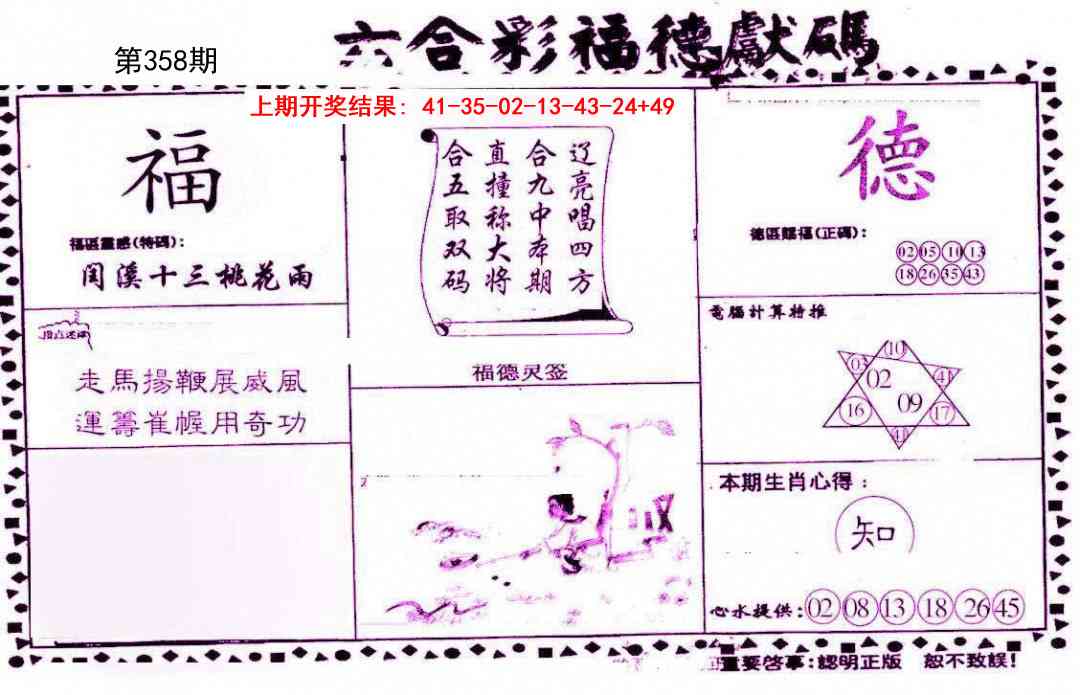 六合彩福德獻碼
第358期
上期开奖结果: 41-35-02-13-43-24+49
福
福區靈感(特碼):
閏溪十三桃花雨
走馬揚鞭展威風
運籌崔幄用奇功
辽亮唱四方
合九中本期
直撞称大将
合五取双码
福德灵签
德
德區賜福(正碼):
02 05 10 13
18 26 35 43
電腦計算特推
10
03 41
02
09
16 17
41
本期生肖心得:
知
心水提供: 02 08 13 18 26 45
重要启事:認明正版 恕不致誤!